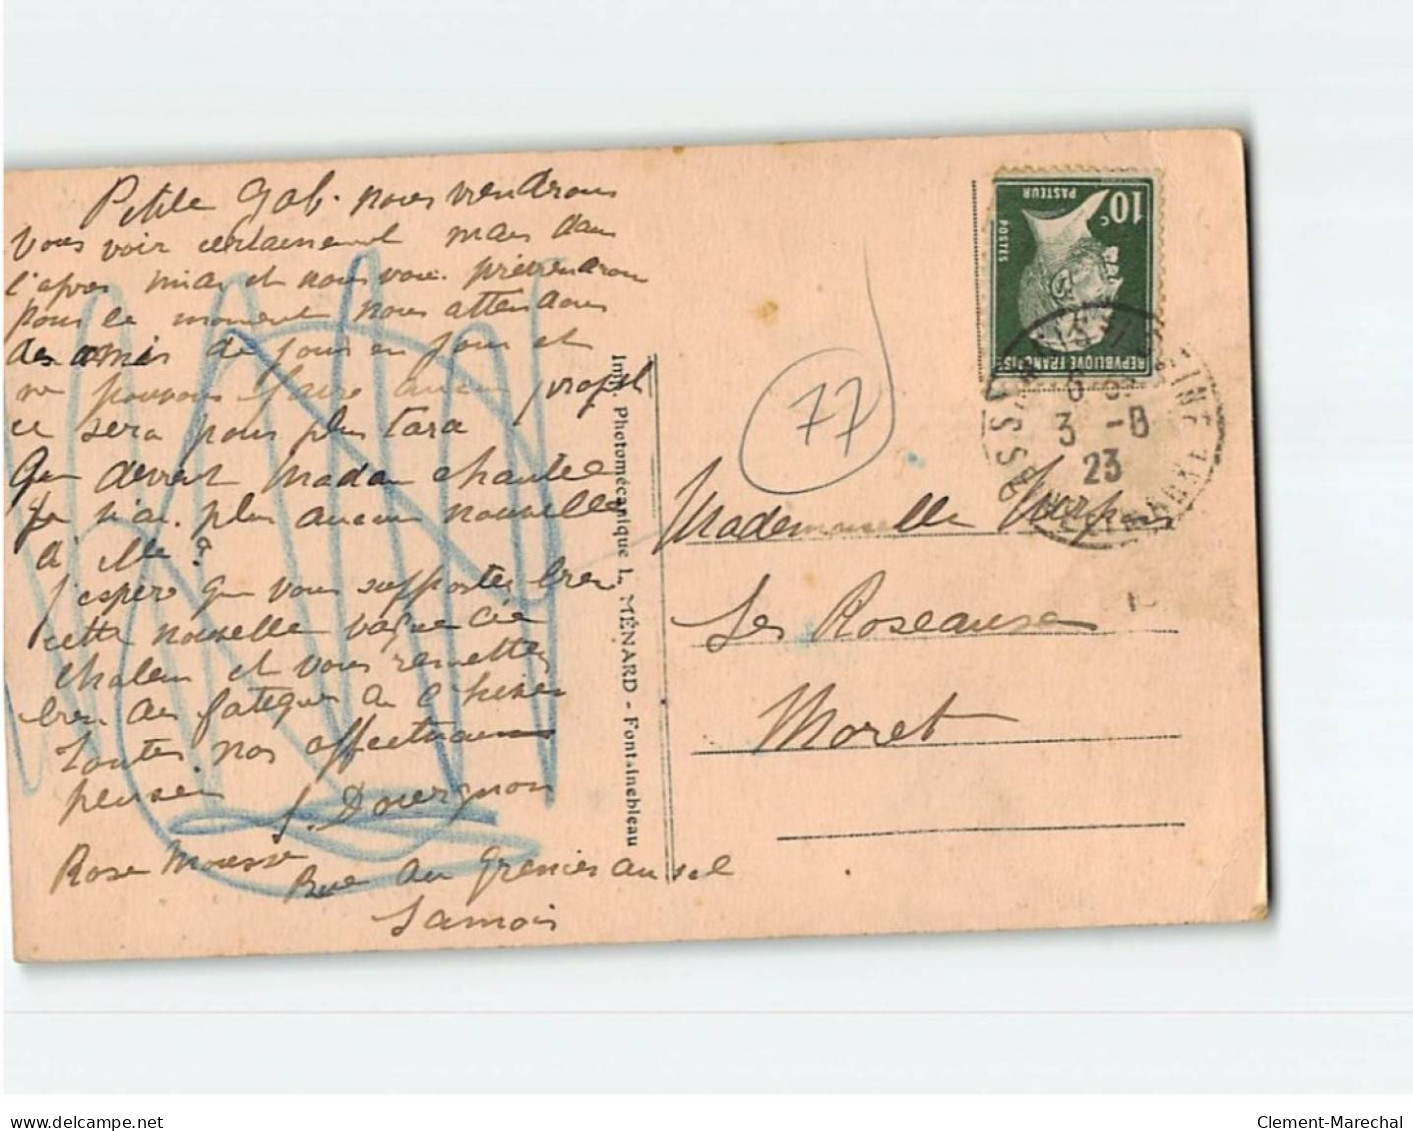 Petite Gab. nous viendrons
vous voir certainement mais dans
l'apres midi et nous vous préviendrons
pour le moment nous attendons
des amis de jour en jour et
ne pouvons faire aucun projet
ce sera pour plus tard
Que devient Madame
Je n'ai plus aucune nouvelle
d'elle
j'espère que vous supportez bien
cette nouvelle vague de
chaleur et vous remettez
bien des fatigues de l'hiver
Toutes nos affectueuses
pensées
Rose Mousse
Rue du Grenier au sel
Samois
Imp. Photomécanique L. MÉNARD - Fontainebleau
77
10c
PASTEUR
POSTES
REPVBLIQVE FRANÇAISE
3 -8
23
Mademoiselle
Les Roseaux
Moret
Clement-Marechal